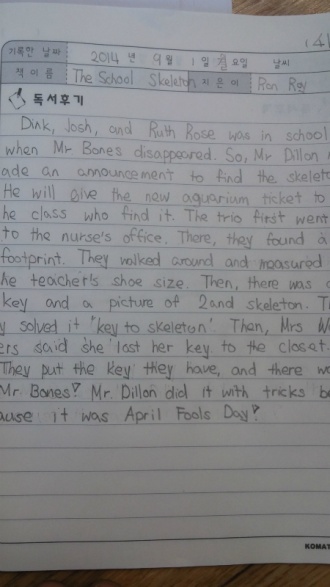 141
기록한 날짜 2014 년 9 월 1 일 월 요일 날씨
책 이 름 The School Skeleton 지 은 이 Ron Roy
독서후기
Dink, Josh, and Ruth Rose was in school
when Mr Bones disappeared. So, Mr Dillon
ade an announcement to find the skelet
He will give the new aquarium ticket to
he class who find it. The trio first went
to the nurse's office. There, they found a
footprint. They walked around and measured
he teacher's shoe size. Then, there was
key and a picture of 2and skeleton. T
y solved it "key to skeleton". Then, Mrs W
ers said she lost her key to the closet.
They put the key they have, and there w
Mr Bones! Mr. Dillon did it with tricks b
ause it was April Fools Day!
KOMAT